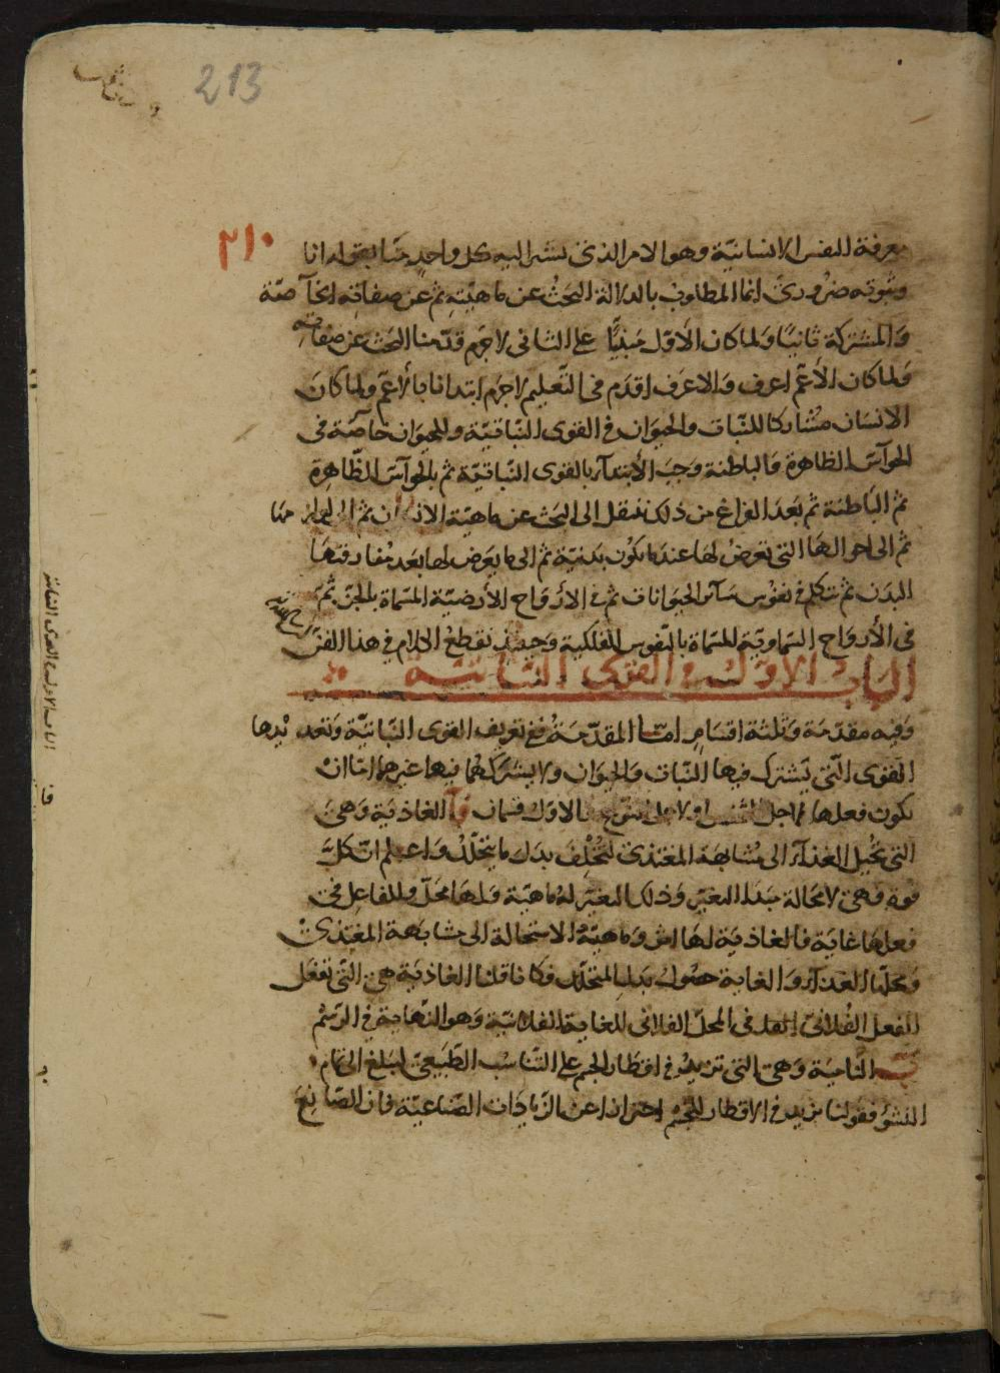 213
٢١٠
معرفة النفس الانسانية وهو الامر الذى يشير اليه كل واحد منا بقوله انا
وثبوته ضرورىّ انما المطلوب بالدلالة البحث عن ماهيته ثم عن صفاته الخآصّة
وَالمشتركة ثانيًا وَلما كان الأوّل مَبنيًّا على الثانى لاجَرم قدّمنا البحث عن صفاته
وَلما كان الأعّم اعرف وَالاعرَف اقدَم فى التّعليم لاجرم ابتدانا بالأعّم ولما كانَ
الانسَان مشاركا للنّبات والحيوَان فى القوى النّباتيّة وللحيوَان خاصّة فى
الحوآسّ الظاهرة وَالباطنة وَجَبَ الأبتدآء بالقوى النّباتيّة ثم بالحوآسّ الظّاهِرة
ثمّ البَاطنة ثم بَعدَ الفرَاغ من ذلك ننتقل الى البَحث عن ماهيّة الانسان ثم الى
ثم الى احوالهَا التى تعرضُ لها عندما تكون بدنيّة ثم الى ما يعرَض لها بعد مُفارقتهَا
البدَن ثم نتكلم فى نفوس سآئر الحيوَانات ثم فى الأروَاح الأرضيّة المسَماة بالجنّ ثمّ
فى الأروَاح السّماويّة المسَمّاة بالنّفوس الفلكية وَحينئذ نقطع الكلام فى هذا الفنّ
البَابُ الأوّل فى القوى النّباتيّة
وَفيه مقدّمَة وَثلثة اقسَام امّا المقدّمَةُ ففى تعريف القوى النّباتيّة وَتعديدها
القوى الّتى يَشترك فيها النّبات وَالحيوَان ولا يشركهُما فيها غيرهما امّا انْ
يكون فعلها لاجل الشخص او لاجل النّوع والاوّل قسمان آ الغاذيَة وَهىَ
التى تحيل الغذآء الى مُشابهَة المغتذى لتُخلِفَ بدَل ما يتحلّل وَاعلم انّ كلّ
قوة فهىَ لامحالة مَبدا التغيّر وَذلك التغيّر لهُ مَاهيّة وَلهَا محَلّ وللفاعِل فى
فعلهَا غايَة فالغاذيَة لهَا اثر وَماهيّتهُ الاستحالة الى مشابَهة المغتذىْ
وَمحَلّها الغذآء وَالغاية حصُول بدَلِ المتحلّل فكاناقلنا الغاذيَة هىَ التّى تفعل
الفعل الفُلانىّ فى المحلّ الفلانى للغاية الفلانيّة وَهو النّهاية فى الرّسْم
بَ النّاميَة وَهىَ التى تزيد فى اقطَار الجسم على التّناسُب الطّبيعىّ ليَبلغ الى تمام
النشوْ فقولنا تزيد فى الاقطار للجسْم احترازا عن الزّيادَات الصّناعيّة فان الصَّانِعَ